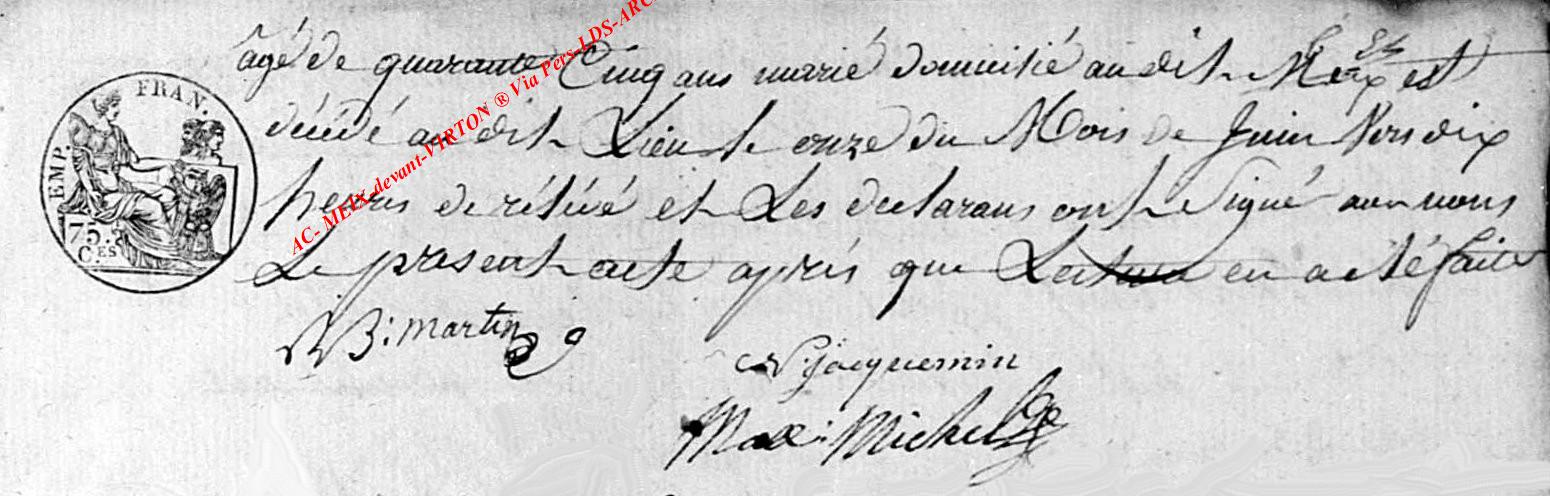 EMP. FRAN.
75. C.ES
AC- MEIX-devant-VIRTON ® Via Pers-LDS-ARC
âgé de quarante Cinq ans marié domicilié audit Meix est
décédé audit Lieu le onze du Mois de Juin Vers dix
heures de rélévé et Les declarans ont Signé avec nous
Le present acte après que Lecture en a eté faite
B: martin
N. jacquemin
Max: Michel